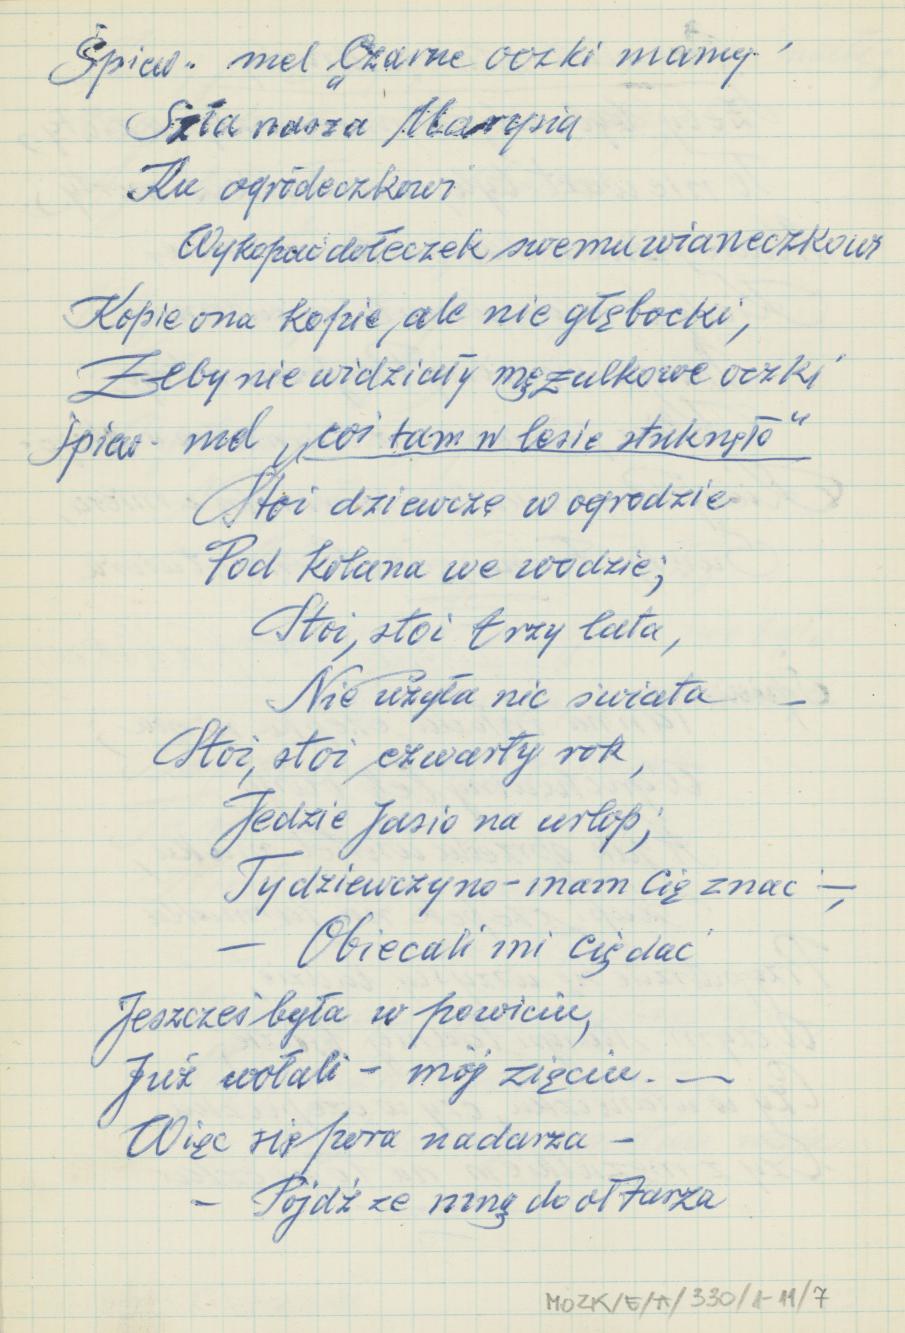 Śpiew. mel „Czarne oczki mamy”
Szła nasza Marysia
Ku ogródeczkowi
Wykopać dołeczek swemu wianeczkowi
Kopie ona kopie, ale nie głębocki,
Żeby nie widziały mężulkowe oczki
Śpiew - mel „coś tam w lesie stuknęło”
Stoi dziewczę w ogrodzie
Pod kolana we wodzie;
Stoi, stoi trzy lata,
Nie użyła nic świata —
Stoi, stoi czwarty rok,
Jedzie Jasio na urlop;
Ty dziewczyno - mam Cię znać —,
— Obiecali mi Cię dać
Jeszcześ była w powiciu,
Już wołali - mój zięciu. —
Więc się pora nadarza -
- Pójdź ze mną do ołtarza
MOZK/E/A/330/1-11/7